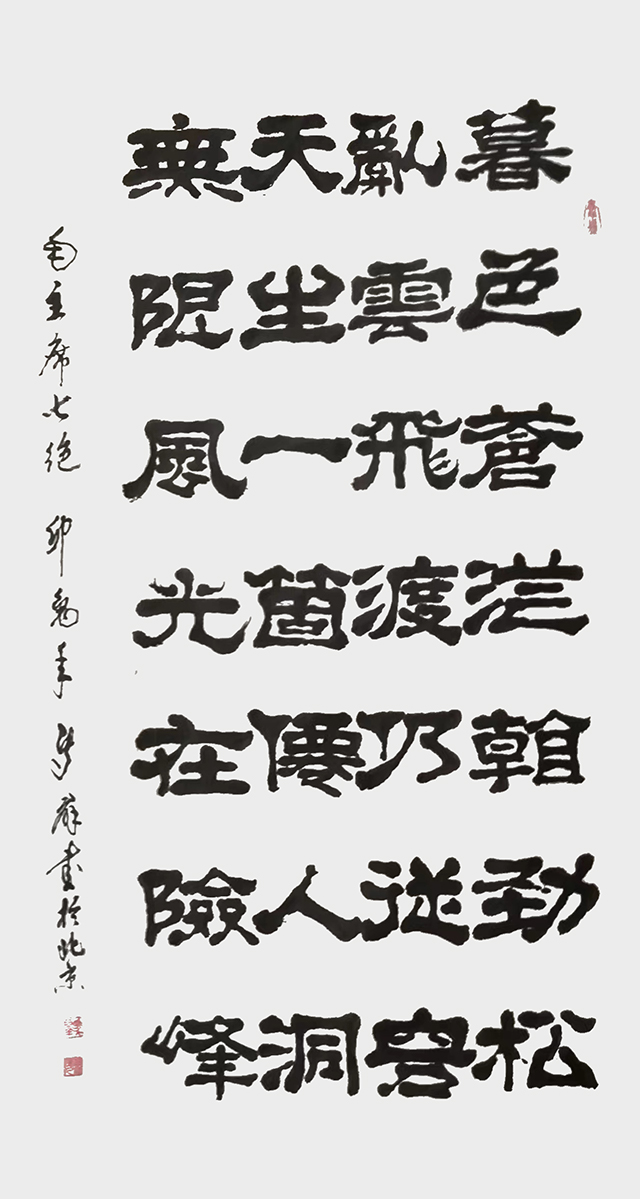 暮色蒼茫看勁松
亂雲飛渡仍從容
天生一箇僊人洞
無限風光在險峰
毛主席七绝 卯兔年 书於北京